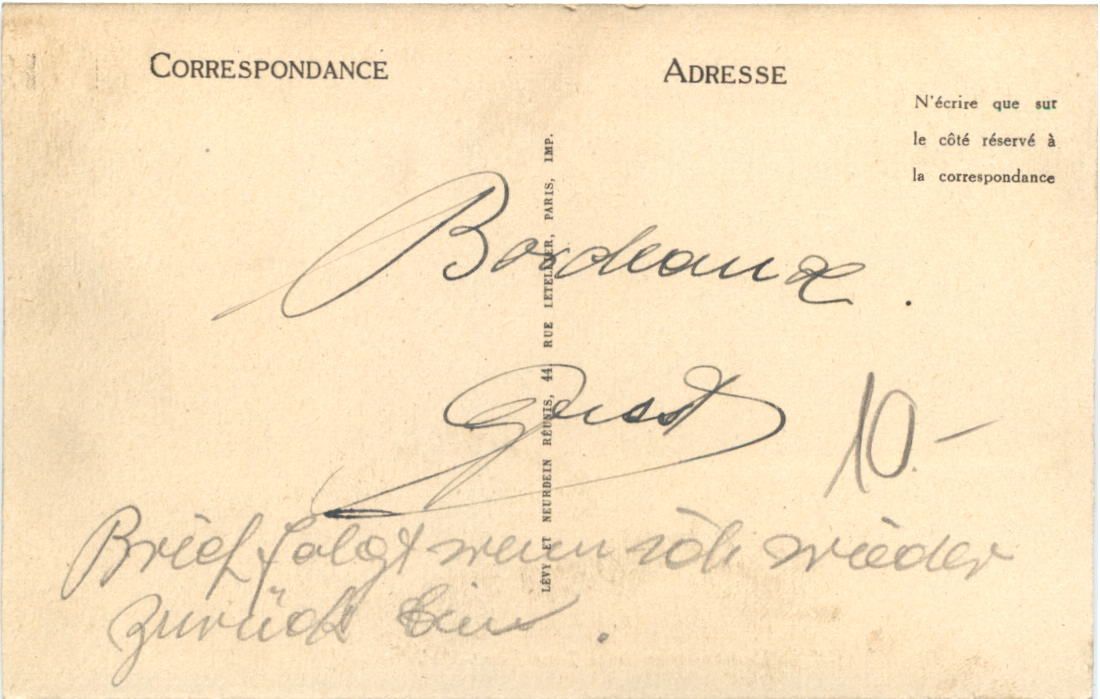 CORRESPONDANCE
ADRESSE
N'écrire que sur
le côté réservé à
la correspondance
LÉVY ET NEURDEIN RÉUNIS, 44, RUE LETELLIER, PARIS, IMP.
Bordeaux.
10.-
Brief folgt wenn ich wieder
zurück bin.